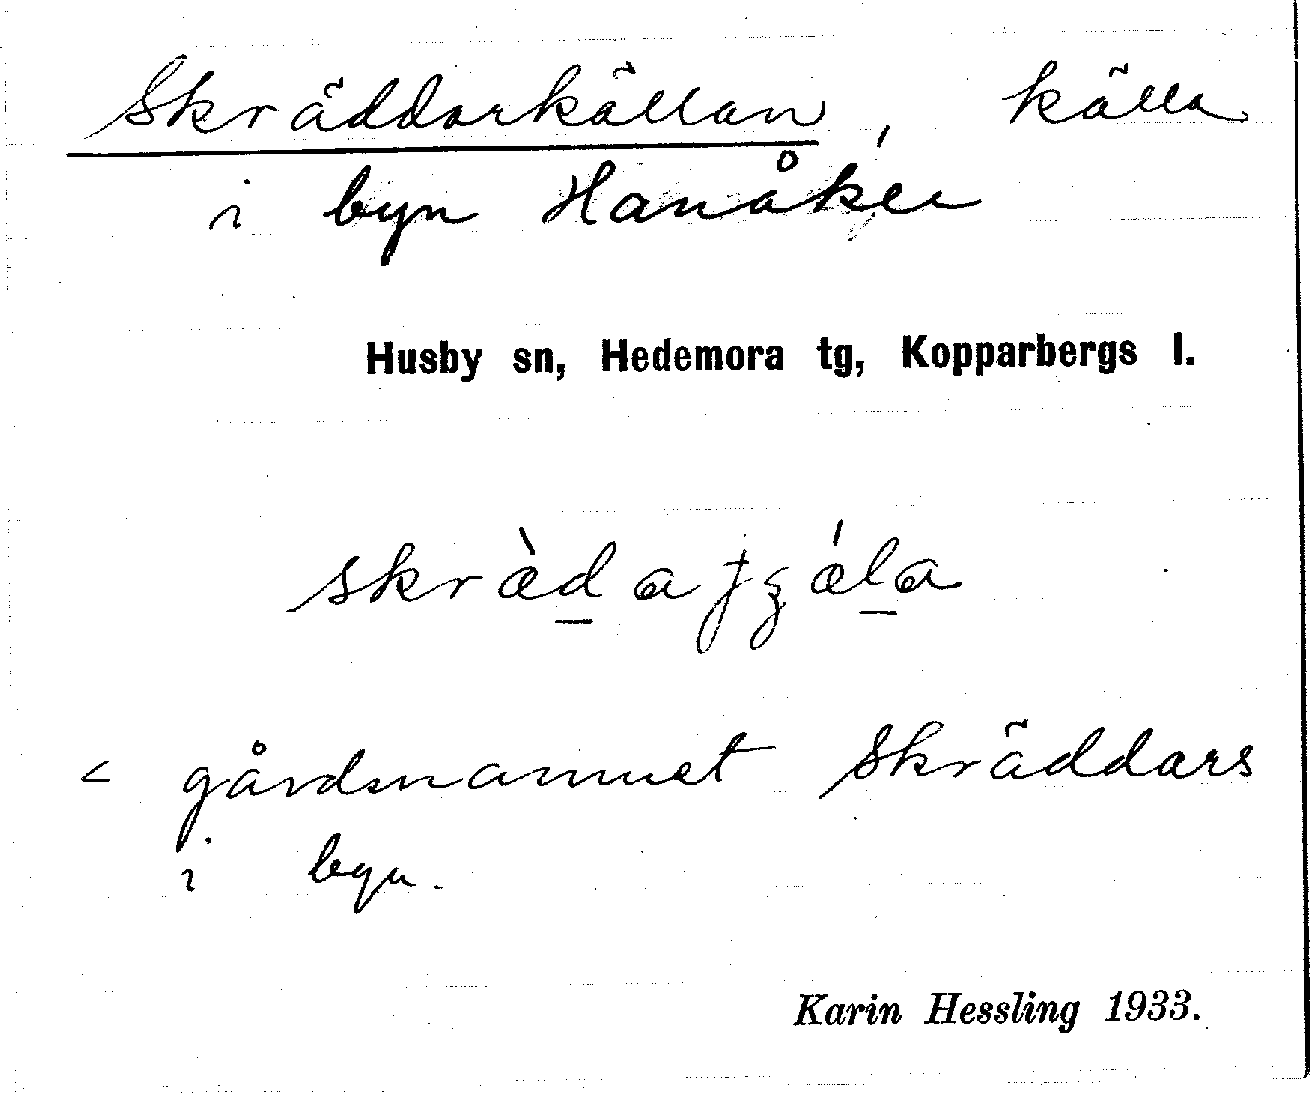 Skräddarkällan, källa
i byn Hanåker
Husby sn, Hedemora tg, Kopparbergs l.
< gårdsnamnet Skräddars
i byn.
Karin Hessling 1933.